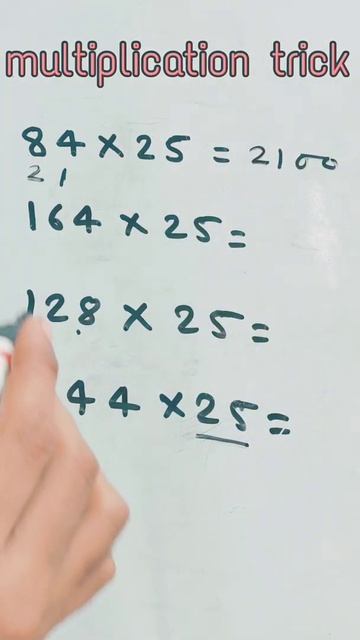 multiplication trick
84 × 25 = 2100
21
164 × 25 =
128 × 25 =
44 × 25 =